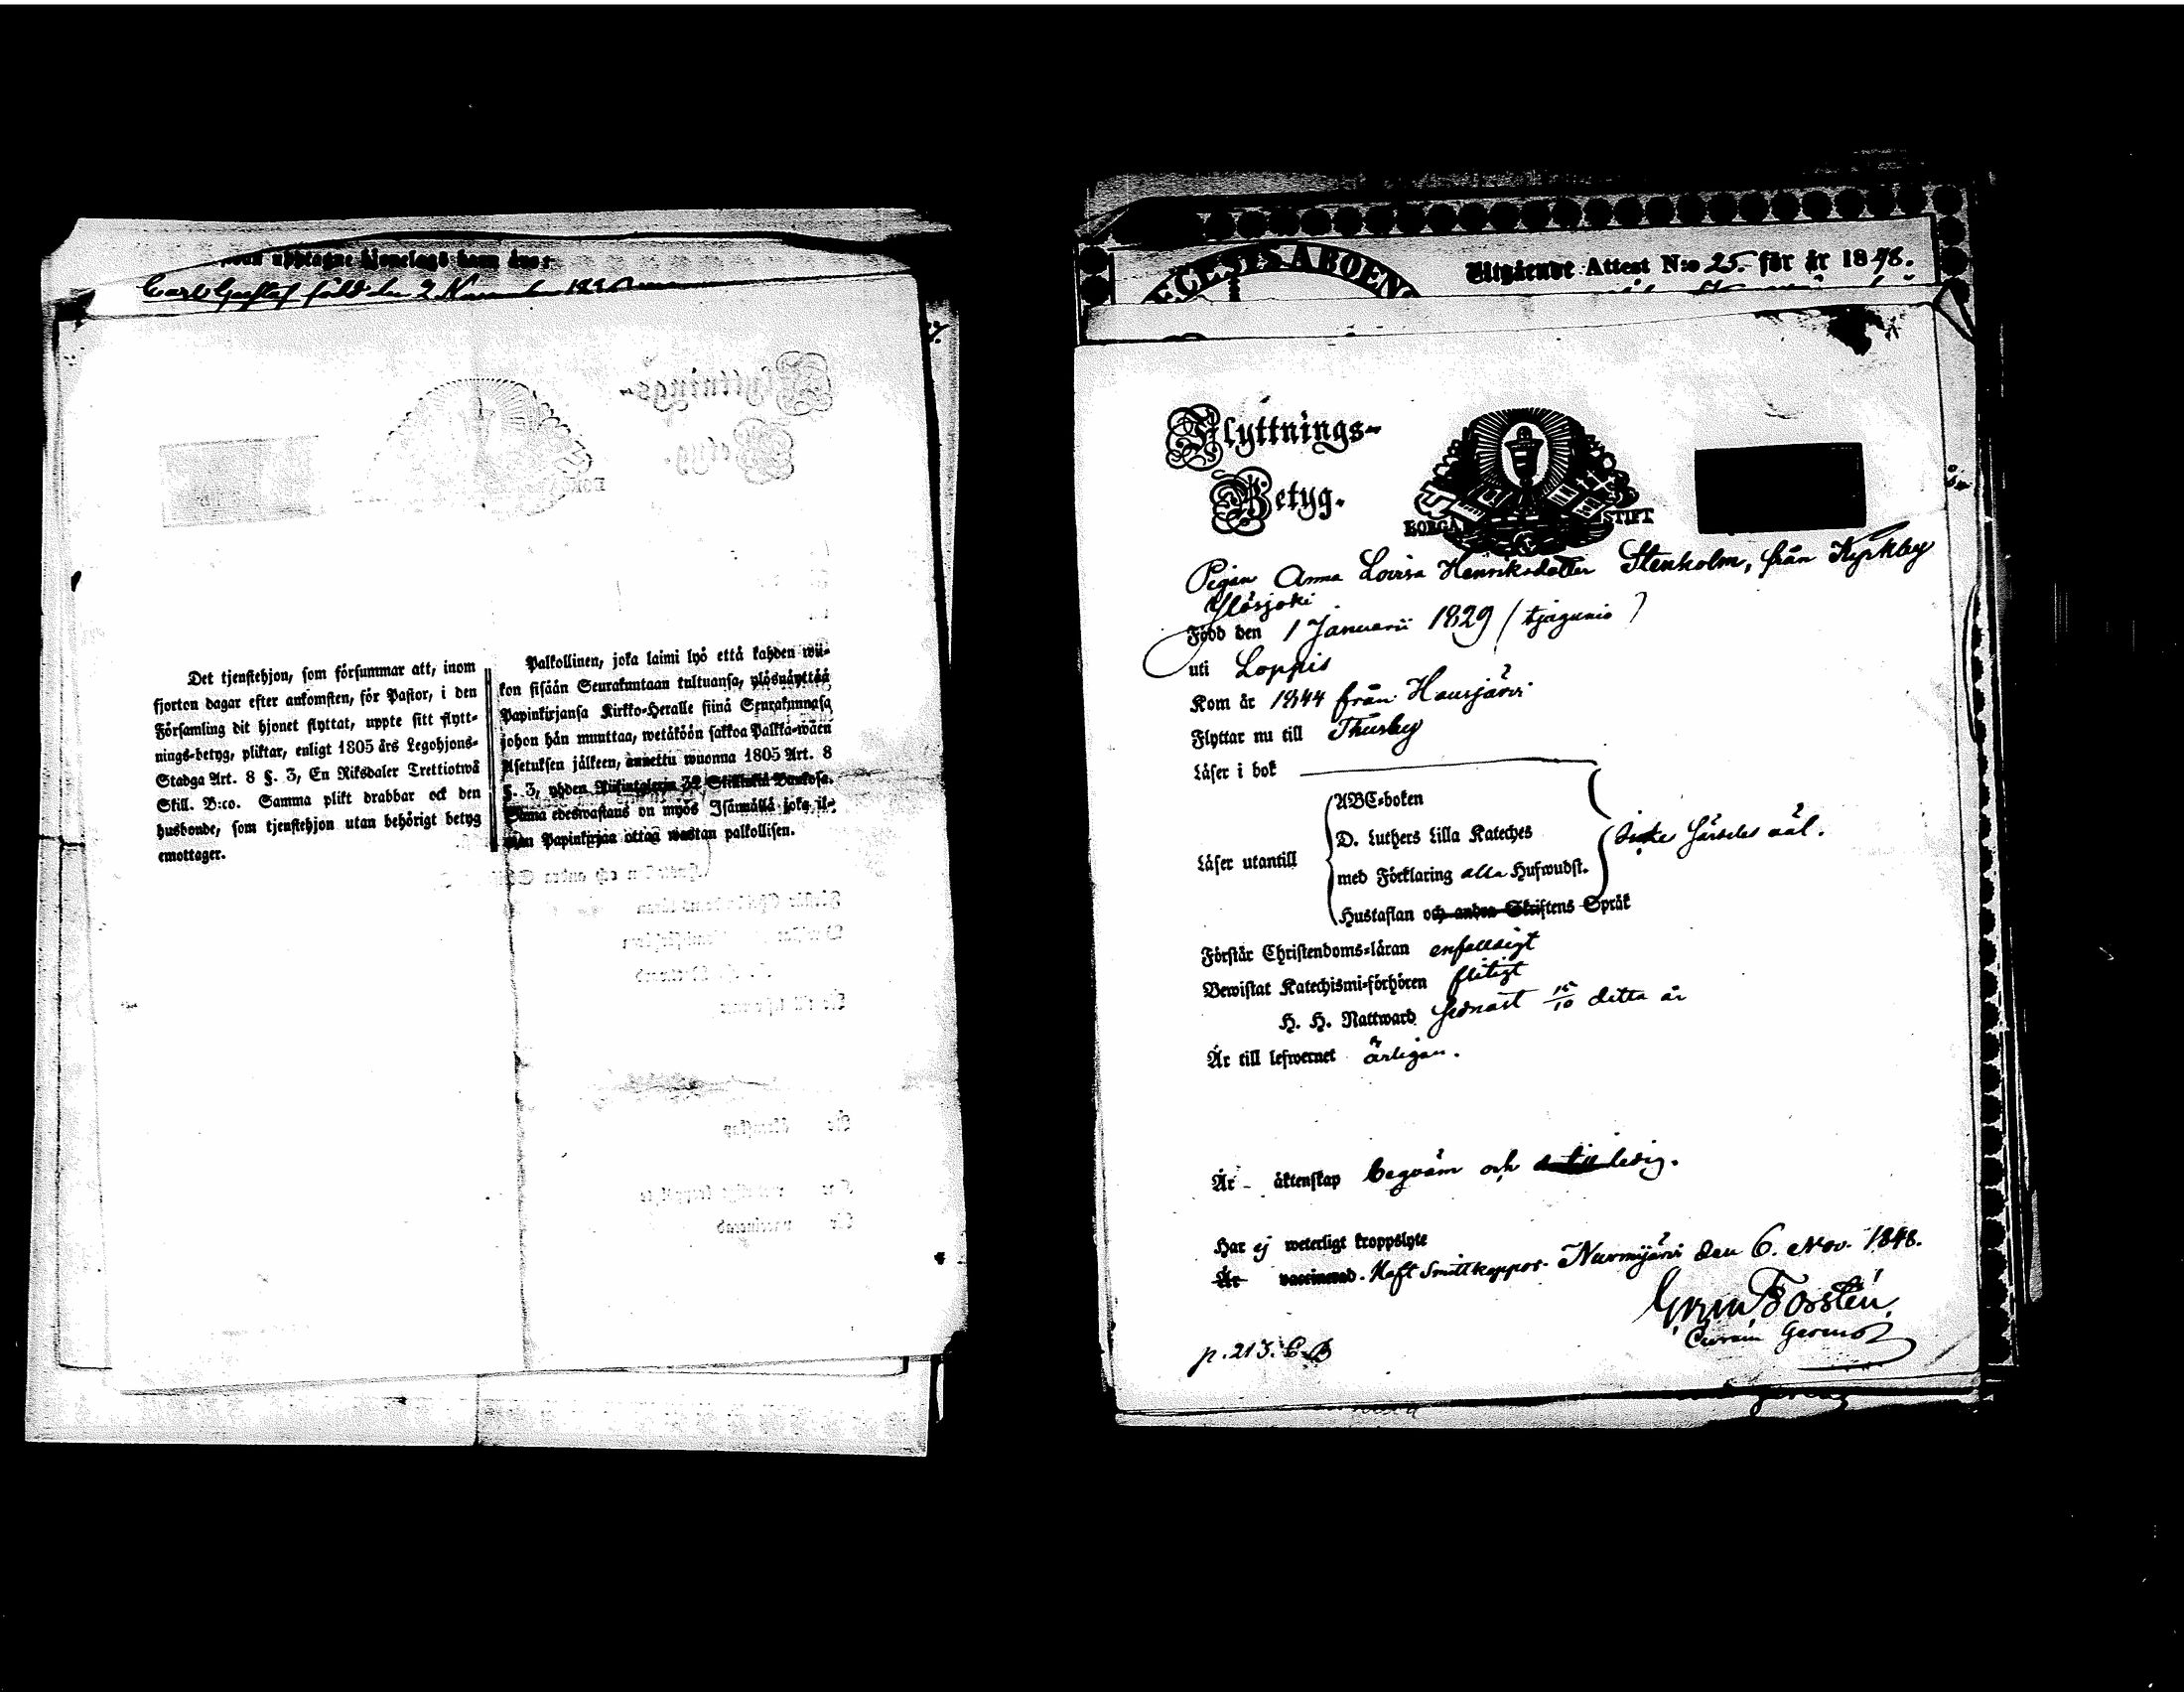 Carl Gustaf född den 2
Det tjenstehjon, som försummar att, inom
fjorton dagar efter ankomsten, för Pastor, i den
Församling dit hjonet flyttat, uppte sitt flytt-
nings-betyg, pliktar, enligt 1805 års Legohjons-
Stadga Art. 8 §. 3, En Riksdaler Trettiotwå
Skill. B:co. Samma plikt drabbar ock den
husbonde, som tjenstehjon utan behörigt betyg
emottager.
Palkollinen, joka laimi lyö että kahden wii-
kon sisään Seurakuntaan tultuansa, ylösnäyttää
Papinkirjansa Kirkko-Heralle siinä Seurakunnasa
johon hän muuttaa, wetäköön sakkoa Palkka-wäen
Asetuksen jälkeen, annettu wuonna 1805 Art. 8
§. 3, yhden Riikintalerin 32 Skillinkiä Bankosa.
Sama edeswastaus on myös Isännällä joka il-
man Papinkirjaa ottaa wastan palkollisen.
ECLESIS ABOENS
Utgående Attest N:o 25. för år 1848.
Flyttnings-
Betyg.
BORGÅ STIFT
Pigan Anna Lovisa Henriksdotter Stenholm, från Kyrkby
Ylösjoki
Född den 1 Januarii 1829
uti Loppis
Kom år 1844 från Hausjärvi
Flyttar nu till Thusby
Läser i bok
ABC-boken
D. Luthers Lilla Kateches
Läser utantill
med Förklaring alla Hufwudst.
Hustaflan och andra Skriftens Språk
väl.
Förstår Christendoms-läran enfalldigt
Bewistat Katechismi-förhören flitigt
H. H. Nattward sednast 15/10 detta år
Är till lefwernet ärligen.
Är äktenskap beqväm och ledig.
Har ej weterligt kroppslyte
Är vaccinerad. Haft Smittkoppor. Nurmijärvi den 6. Nov. 1848.
Forstén,
p. 213. C. B